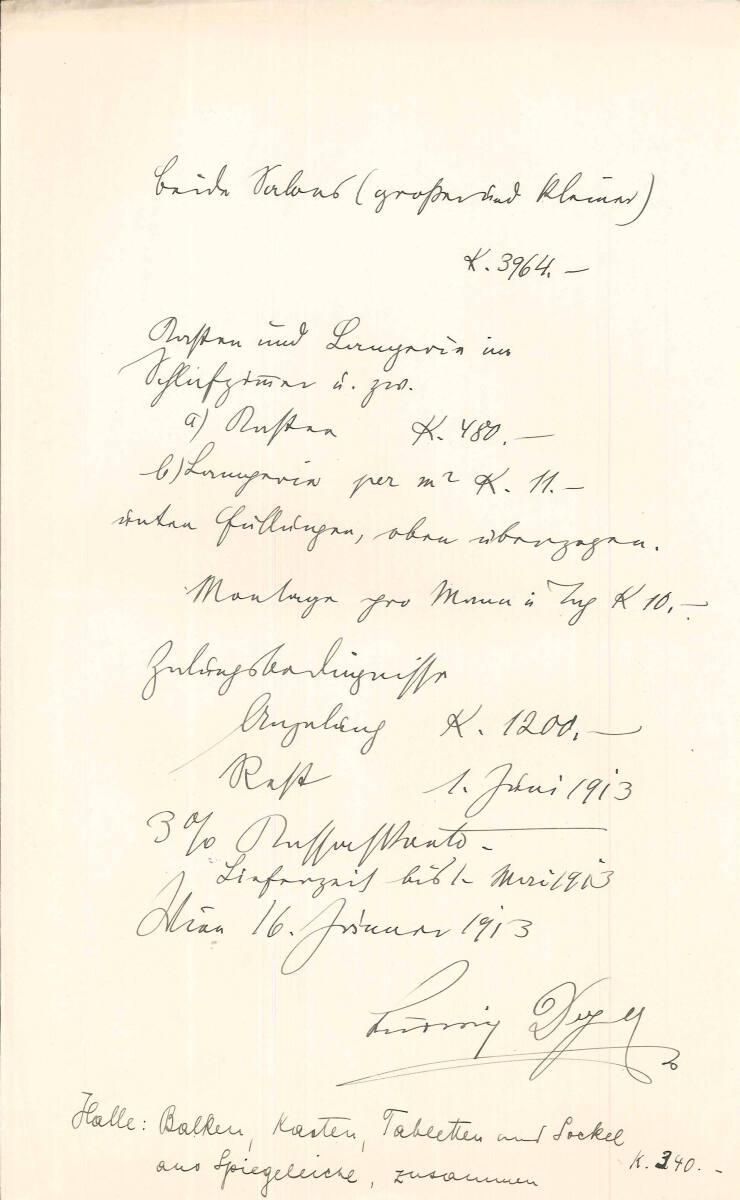 beide Salons (großer und kleiner)
K. 3964.–
Kasten und Lamperie im
Schlafzimmer u. zw.
a) Kasten K. 480.–
b) Lamperie per m² K. 11.–
unten Füllungen, oben überzogen.
Montage pro Mann u Tag K 10.–
Zalungsbedingnisse
Anzalung K. 1200.–
Rest 1. Juni 1913
3% Kassaskonto –
Lieferzeit bis 1. Mai 1913
Wien 16. Jänner 1913
Ludwig
Halle: Balken, Kasten, Tabletten und Sockel
aus Spiegeleiche, zusammen K. 340.–